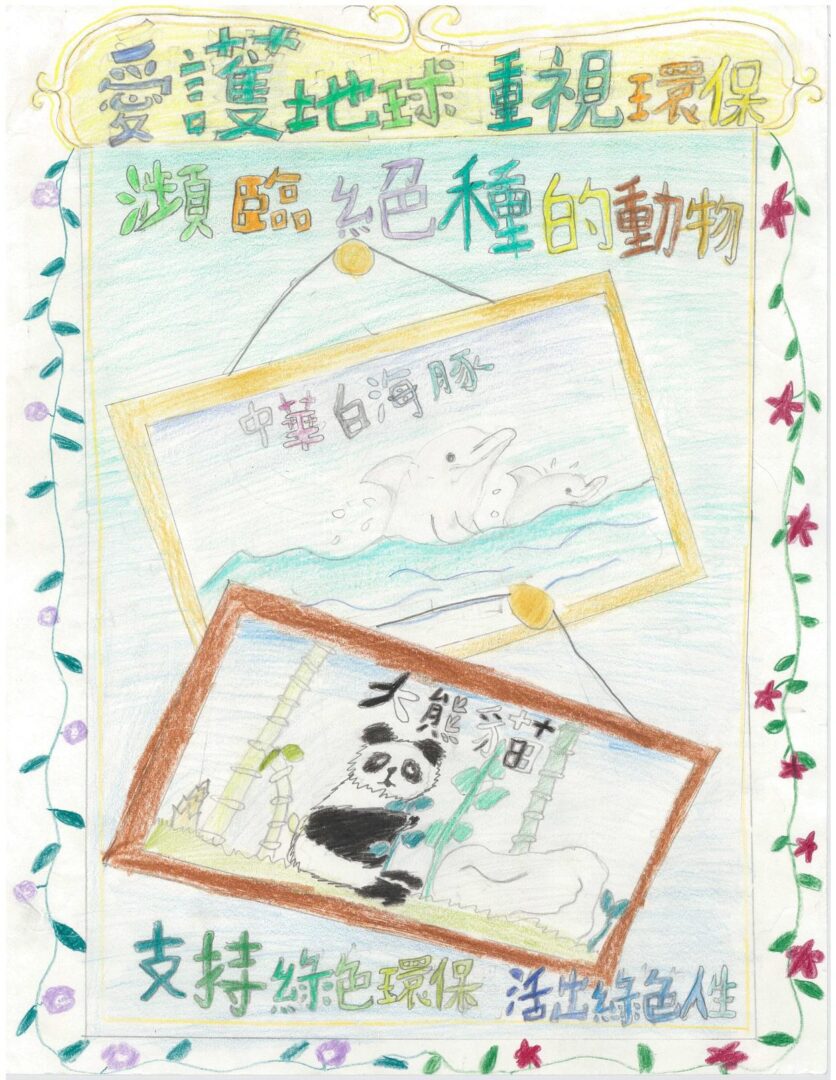 愛護地球 重視環保
瀕臨絕種的動物
中華白海豚
大熊貓
支持綠色環保 活出綠色人生